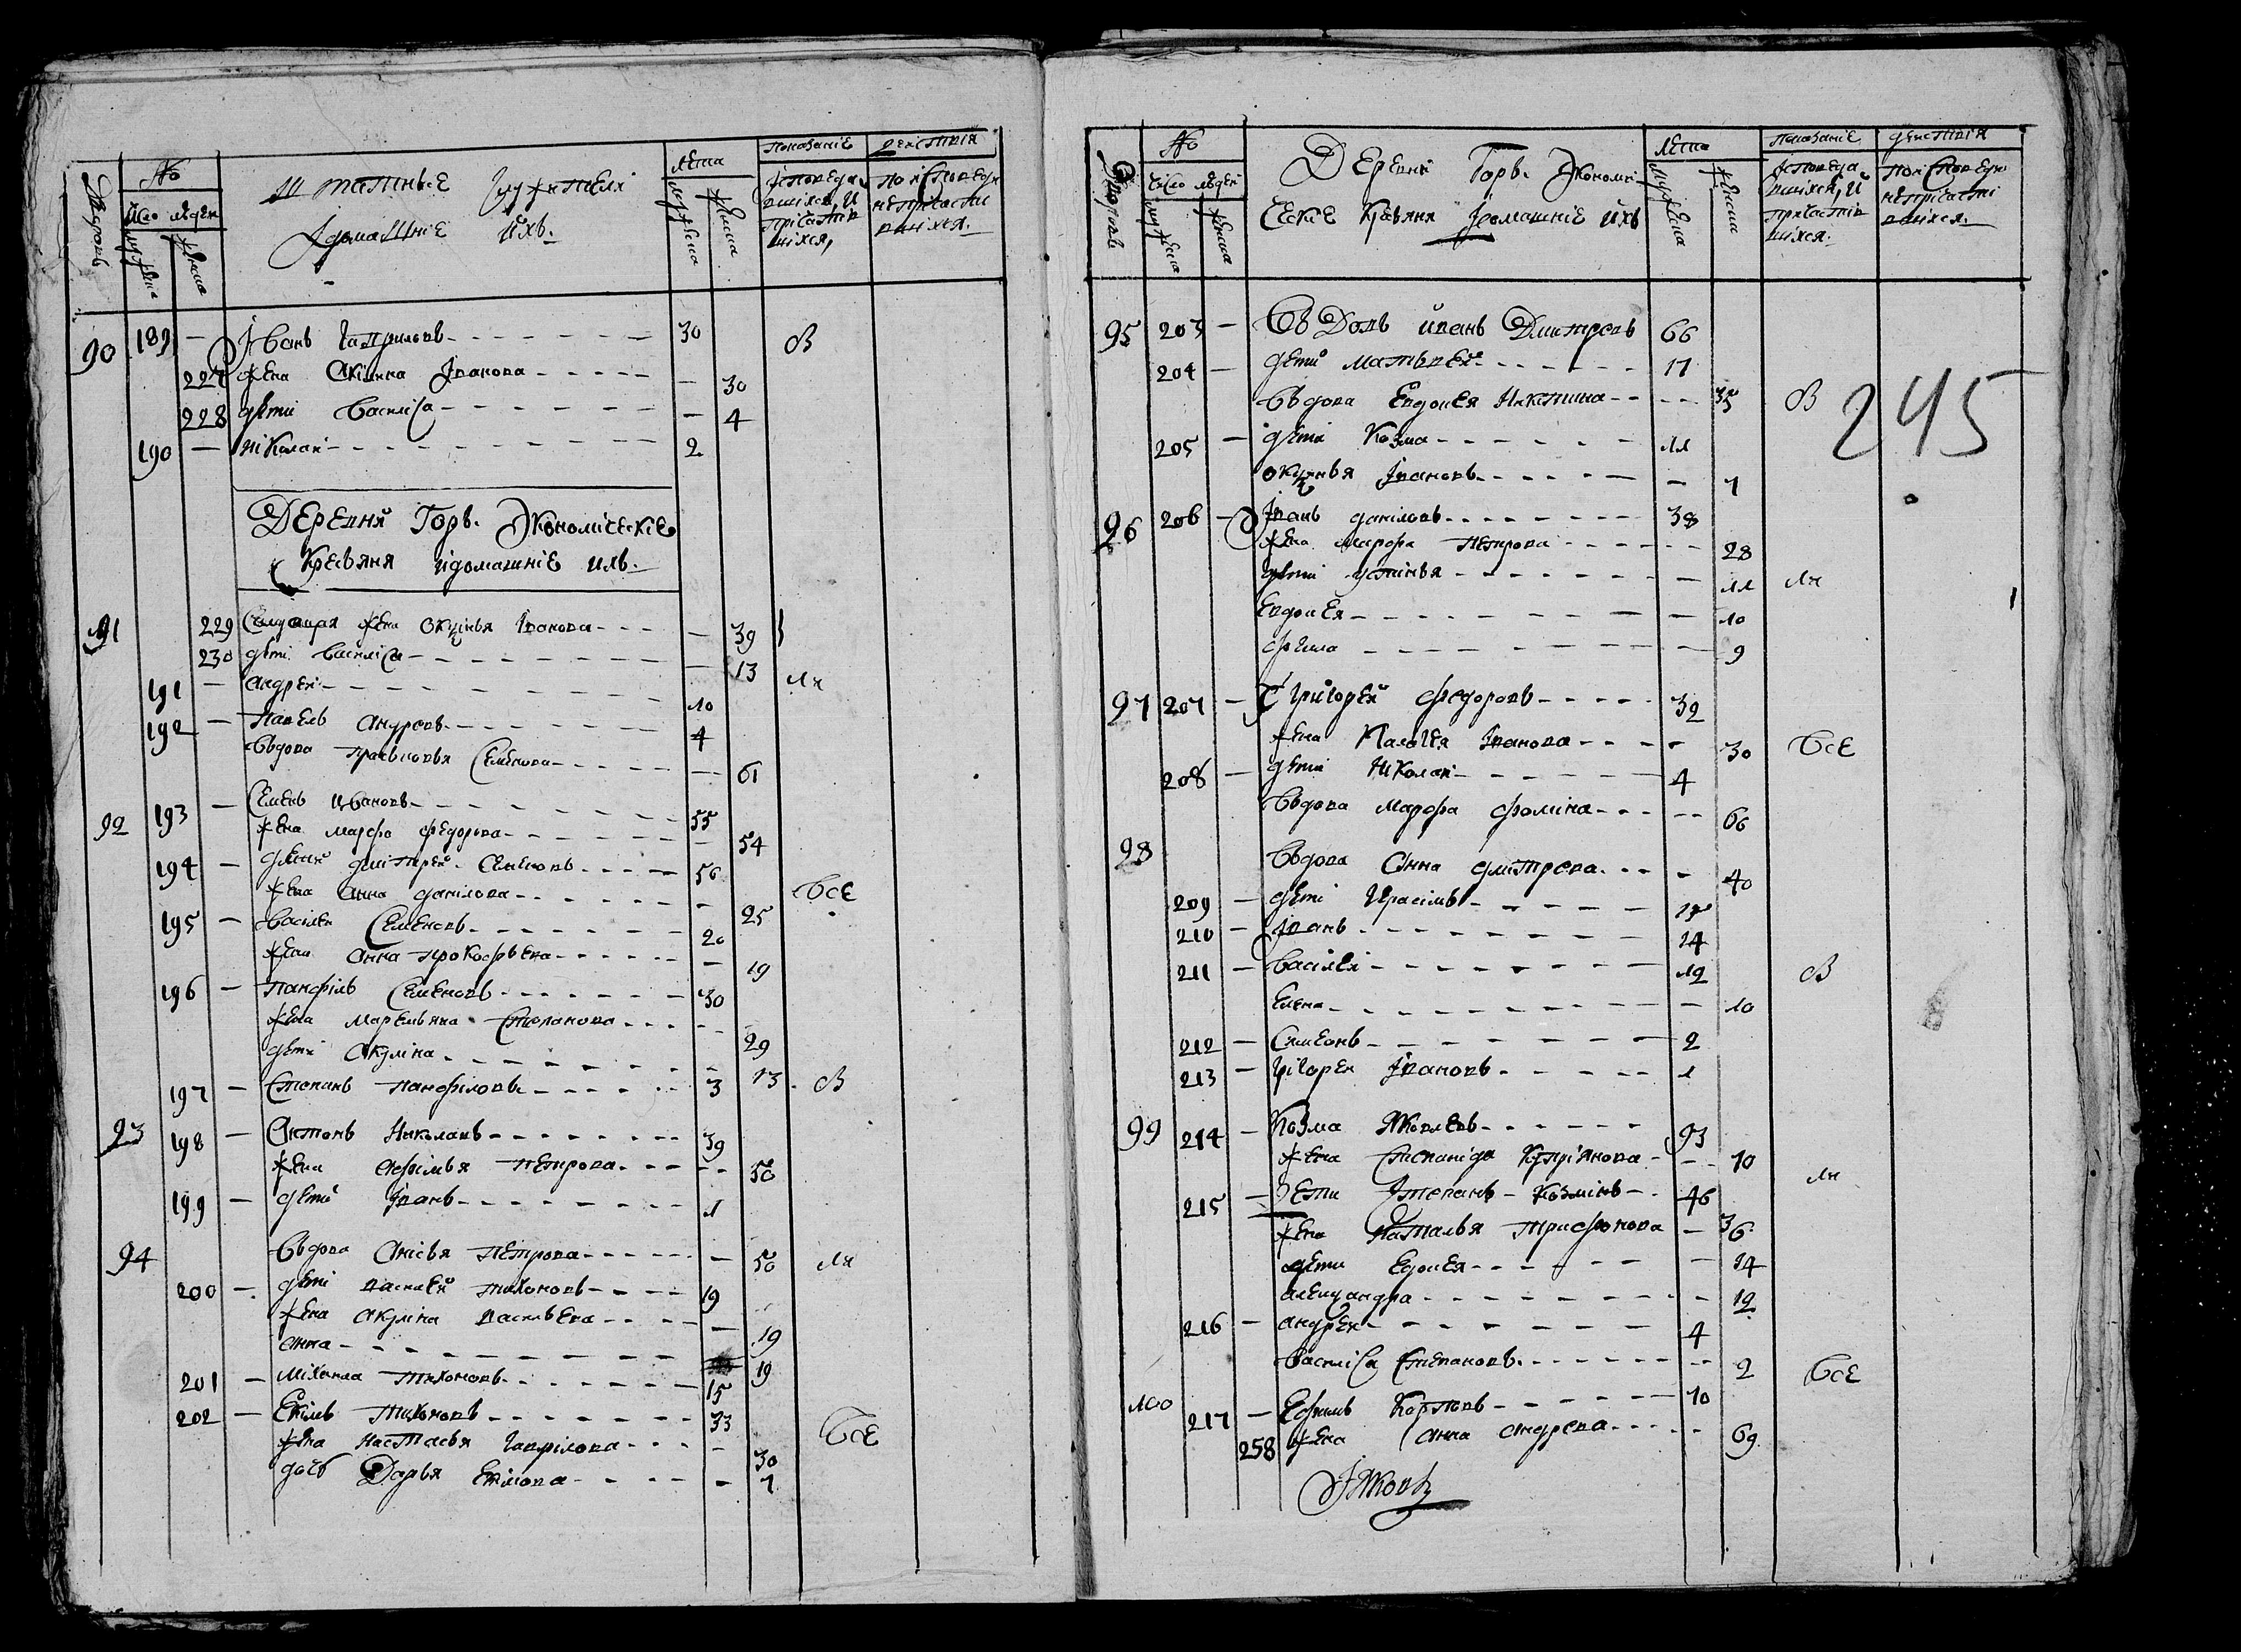 №
Число людей
мужеска
женска
Штатные служители
и домашние ихъ.
лета
мужеска
женска
показание
действия
исповеда
вшихся, и
причастив
шихся,
по исповеди
непричасти
вшихся.
90 189 — Іванъ Гавриловъ 30 В
227 жена Іванова — 30
228 дети Василиса — 4
190 — Николай 2
Деревня Горъ. Экономические
кресьяня и домашние ихъ.
91 229 жена Окулинья Іванова — 39
230 дети Василиса — 13
191 — Андрей 10 Ли
192 — Павелъ Андреевъ 4
Вдова Семенова — 61
92 193 — Семенъ Ивановъ 55
жена Марфа Федорова — 54
194 — дети Дмитрей Семеновъ 56
жена Анна Данилова — 25 Все
195 — Василей Семеновъ 20
жена Анна Прокофьева — 19
196 — Панфилъ Семеновъ 30
жена Маремьяна Степанова 29
дети Акулина 13
197 — Степанъ Панфиловъ 3 В
93 198 — Антонъ Николаевъ 39
жена Афимья Петрова 50
199 — дети Іванъ 1
94 Вдова Анисья Петрова — 50 Ли
200 — дети Василей Тихоновъ 19
жена Акулина Васильева — 19
Анна 19
201 — Михаила Тихоновъ 15
202 — Екимъ Тихоновъ 33
жена Настасья Гаврилова — 30 Все
дочь Дарья Екимова — 7
№
Число людей
мужеска
женска
Деревня Горъ. Экономи
ческие кресьяня и домашние ихъ
лета
мужеска
женска
показание
действия
исповеда
вшихся, и
причастив
шихся.
по исповеди
непричасти
вшихся.
95 203 — Вдовъ Иванъ Дмитревъ 66
204 — дети Матвей 17
Вдова Евдокея Никитина 35 В 245
205 — дети Козма 11
Окулинья Івановъ — 7
96 206 — Іванъ Даниловъ 38
жена Марфа Петрова 28
дети Устинья — 11 Ли
Евдокея — 10
9
97 207 — Григорей Федоровъ 32
жена Палагея Іванова — 30 Все
208 — дети Николай 4
Вдова Марфа Фомина 66
98 Вдова Анна Дмитрева — 40
209 — дети Герасимъ 17
210 — Іванъ 14
211 — Василей 12 В
Елена — 10
212 — Симеонъ 2
213 — Григорей Івановъ 1
99 214 — Козма Яковлевъ 93
жена Степанида Куприянова 70 Ли
215 — дети Степанъ Козминъ 46
жена Наталья Трифонова — 36
дети Едокея — 14
Александра — 12
216 — Андрей 4
Василиса Степановъ 2
100 217 — Ефимъ Карповъ 70 Все
258 жена Анна Андреева 69
Іаковъ